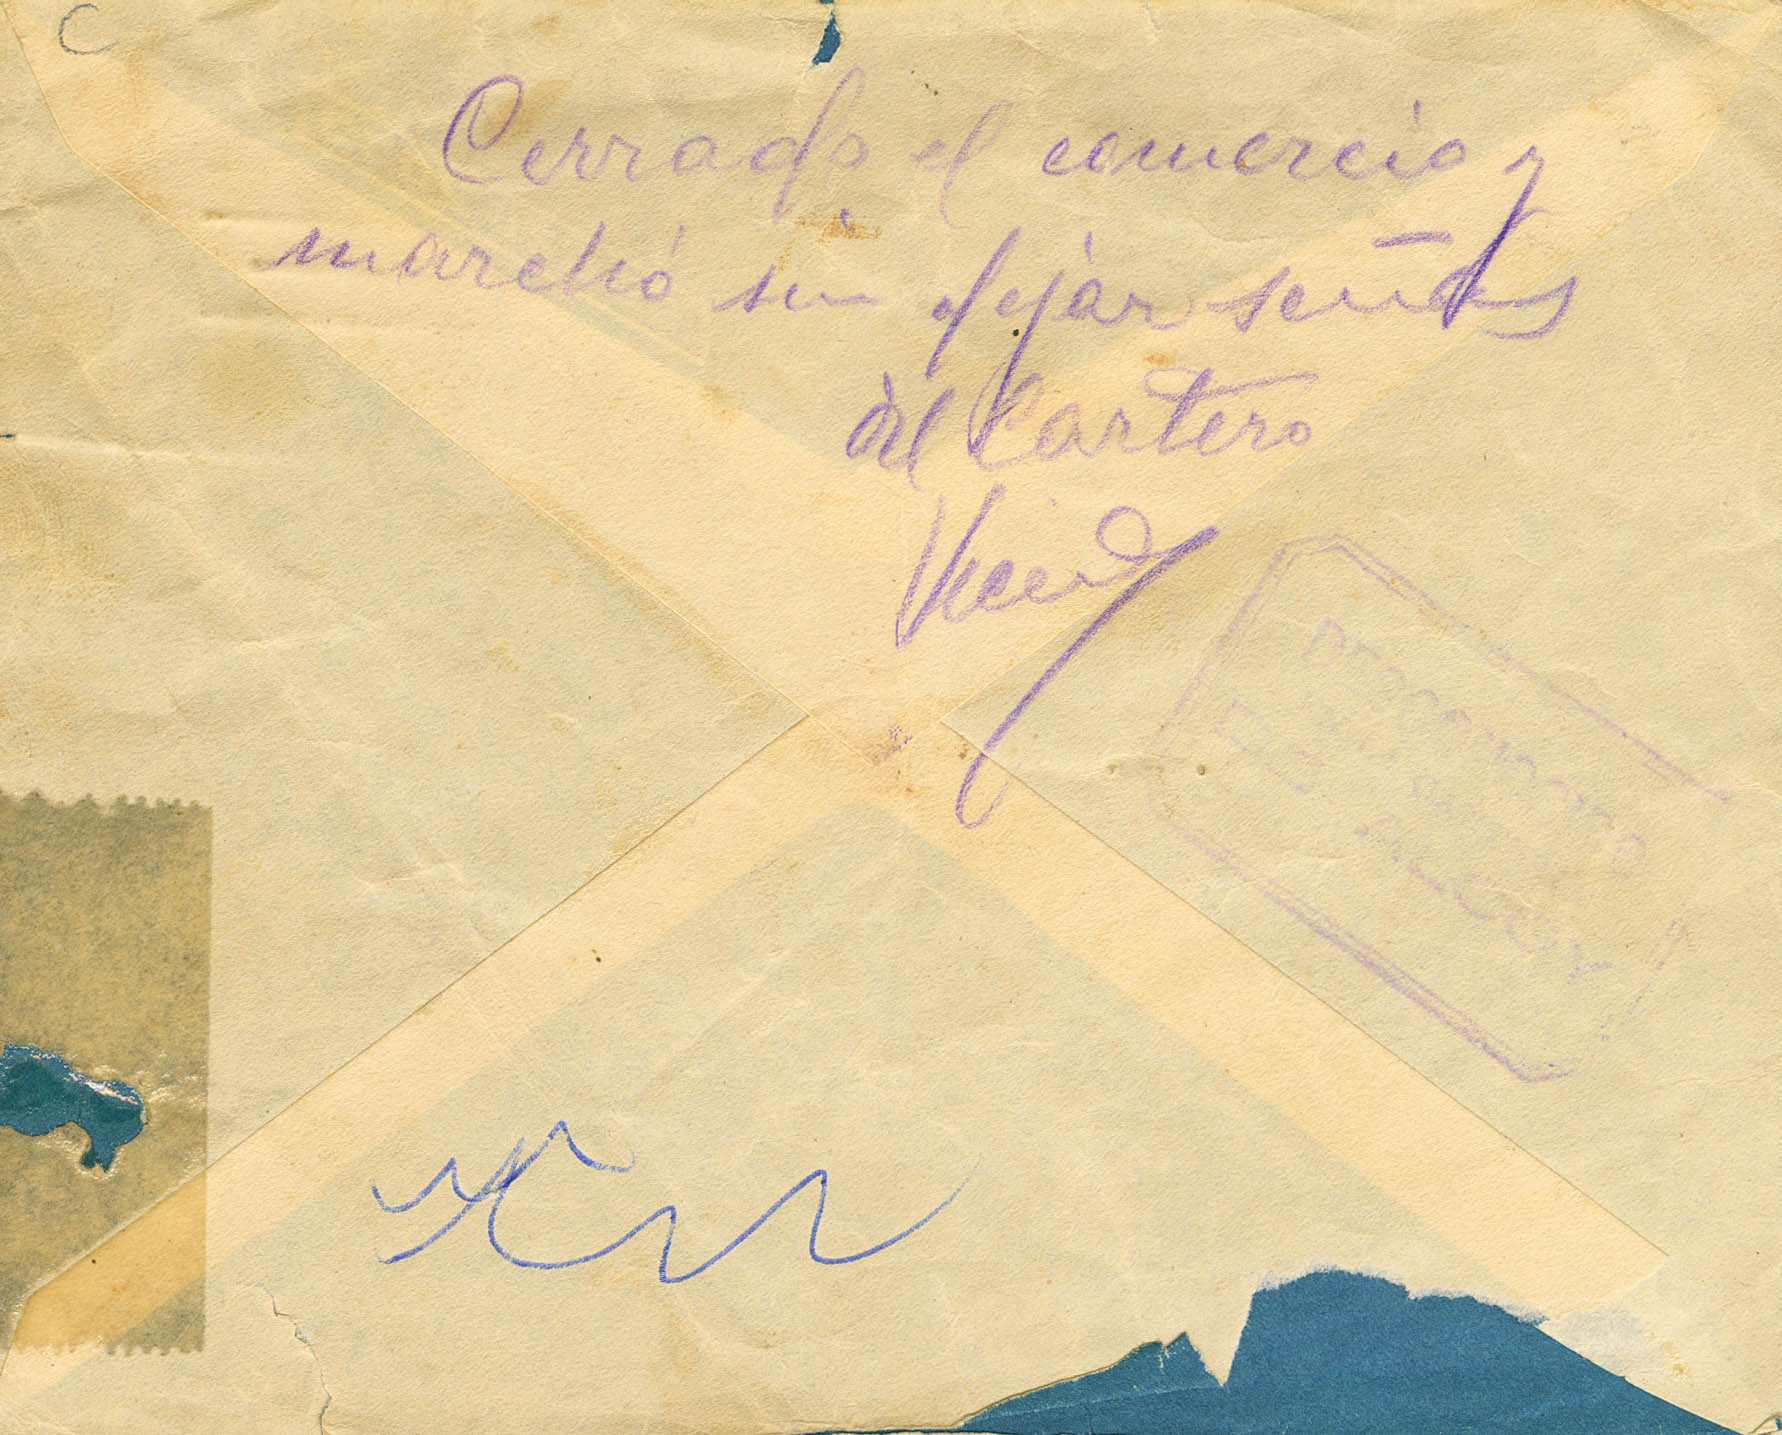 C
Cerrado el comercio y
marchó sin dejar señas
El Cartero
DESCONOCIDO
ALCOY